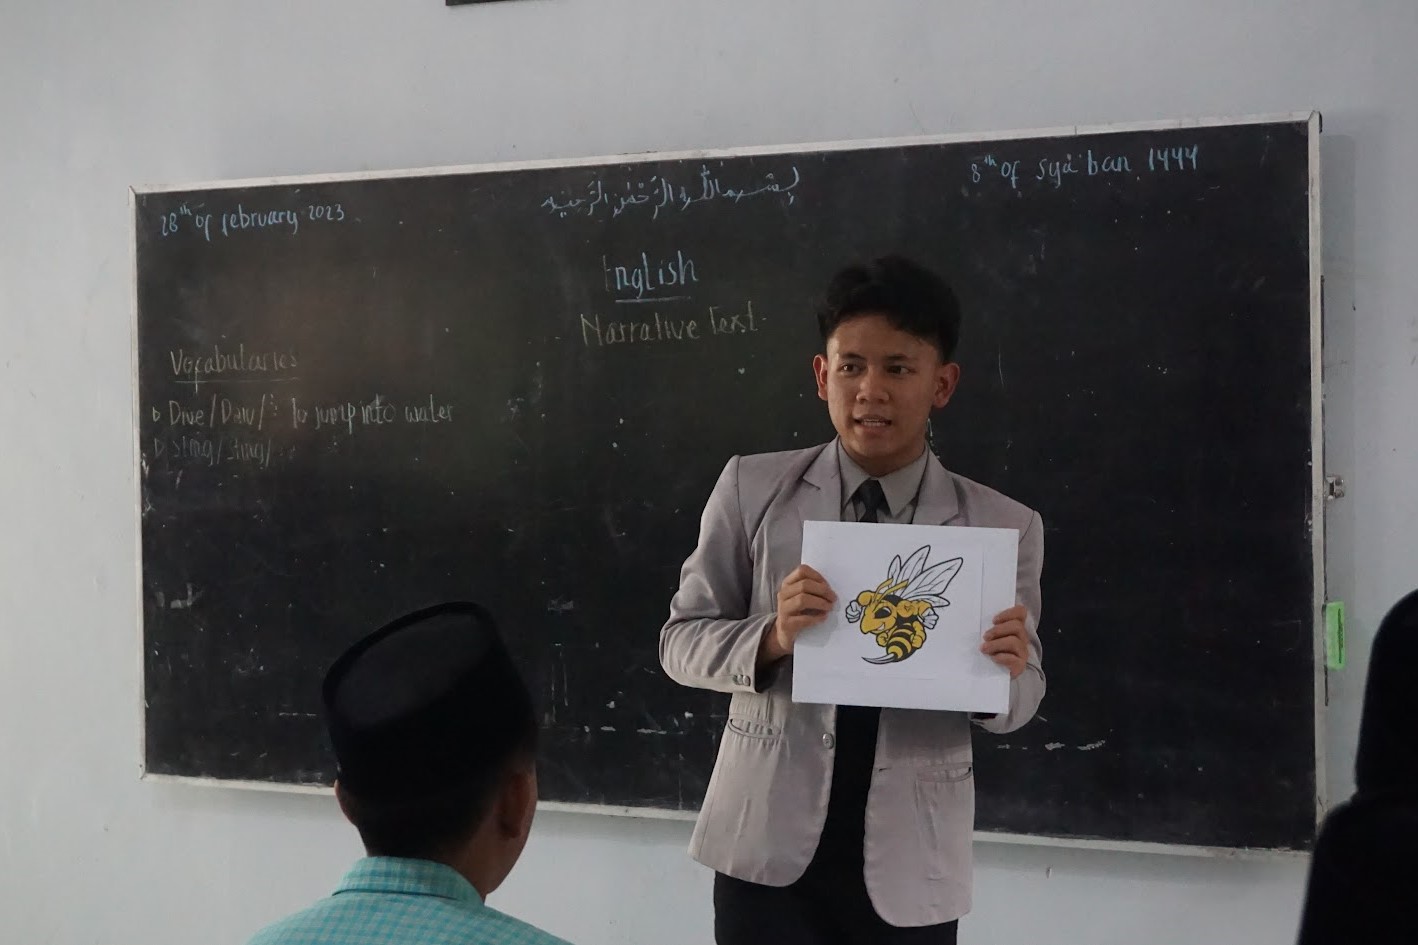 28th of february 2023
بِسْمِ اللّٰهِ الرَّحْمٰنِ الرَّحِيْمِ
8th of Sya'ban, 1444
English
Narrative Text
Vocabularies
Dive/Daiv/: To jump into water
Sting/